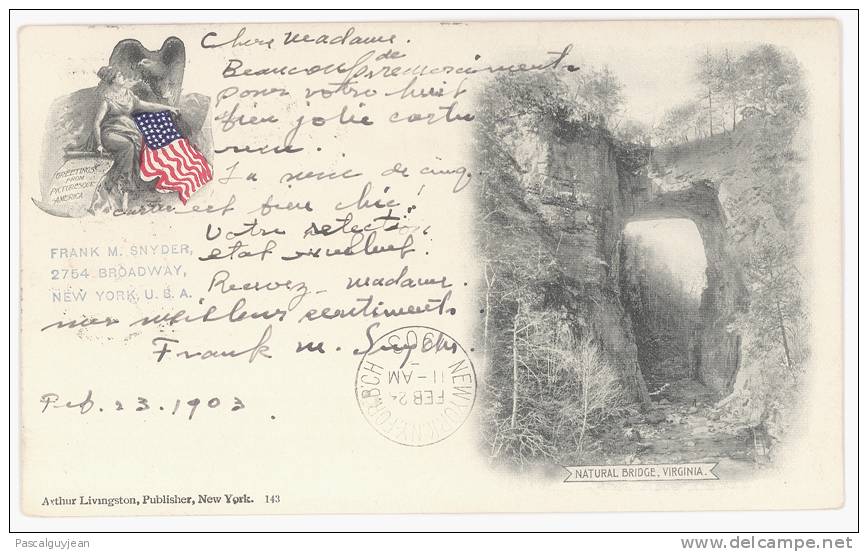 Chere Madame.
Beaucoup de remerciments
pour votre huit
bien jolie cartes
vue.
La serie de cinq
cartes est bien chic!
Votre selection
etait excellent
Recevez madame
mes meilleurs sentiments
Frank M. Snyder.
Feb. 23. 1903.
GREETINGS
FROM
PICTURESQUE
AMERICA
FRANK M. SNYDER,
2754 BROADWAY,
NEW YORK, U. S. A.
NEW YORK
FEB 24
11-AM
1903
NATURAL BRIDGE, VIRGINIA.
Arthur Livingston, Publisher, New York. 143
Pascalguyjean
delcampe.net